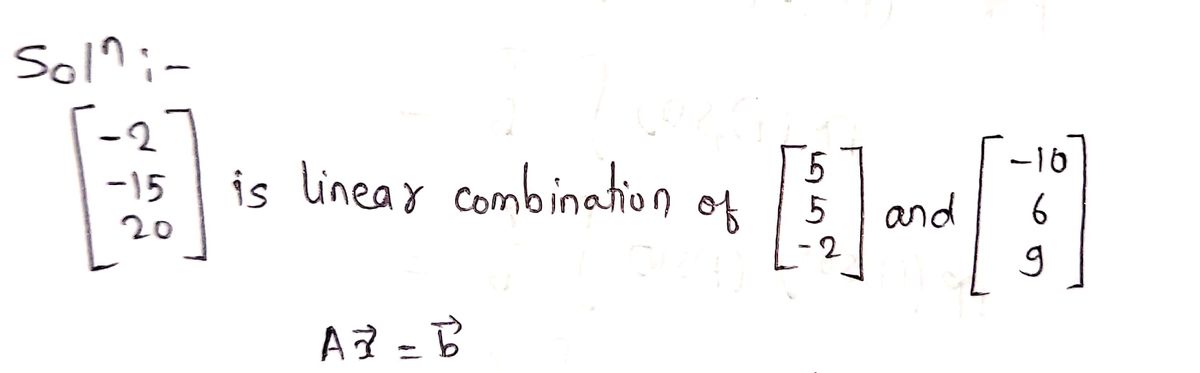 Solⁿ :-
[-2 -15 20] is linear combination of [5 5 -2] and [-10 6 9]
Ax⃗ = b⃗